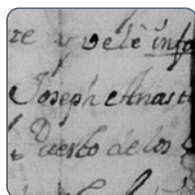 re y velè info
Joseph Anast
Puesto de los